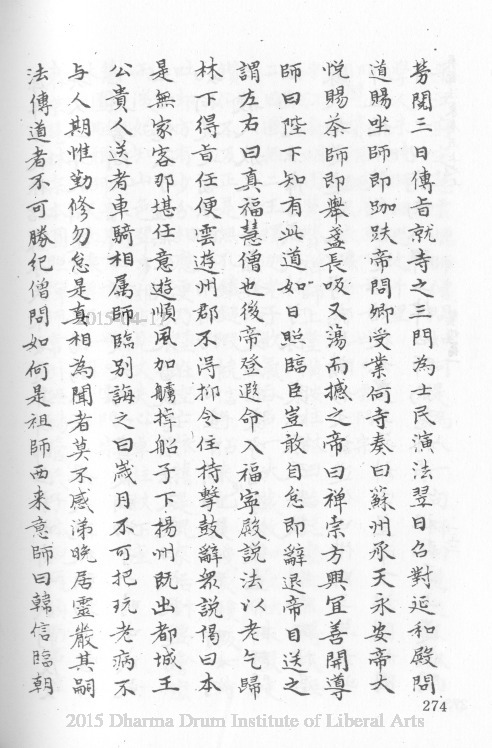 勞閱三日傳旨就寺之三門為士民演法翌日召對延和殿問
道賜坐師即跏趺帝問卿受業何寺奏曰蘇州承天永安帝大
悅賜茶師即舉盞長吸又蕩而撼之帝曰禅宗方興宜善開導
師曰陛下知有此道如日照臨臣豈敢自怠即辭退帝目送之
謂左右曰真福慧僧也後帝登遐命入福寧殿說法以老乞歸
林下得旨任便雲遊州郡不得抑令住持擊鼓辭眾說偈曰本
是無家客那堪任意遊順風加艣棹船子下楊州既出都城王
公貴人送者車騎相属師臨別誨之曰歲月不可把玩老病不
与人期惟勤修勿怠是真相為聞者莫不感涕晚居靈巖其嗣
法傳道者不可勝紀僧問如何是祖師西来意師曰韓信臨朝
274
2015-04-17
2015 Dharma Drum Institute of Liberal Arts